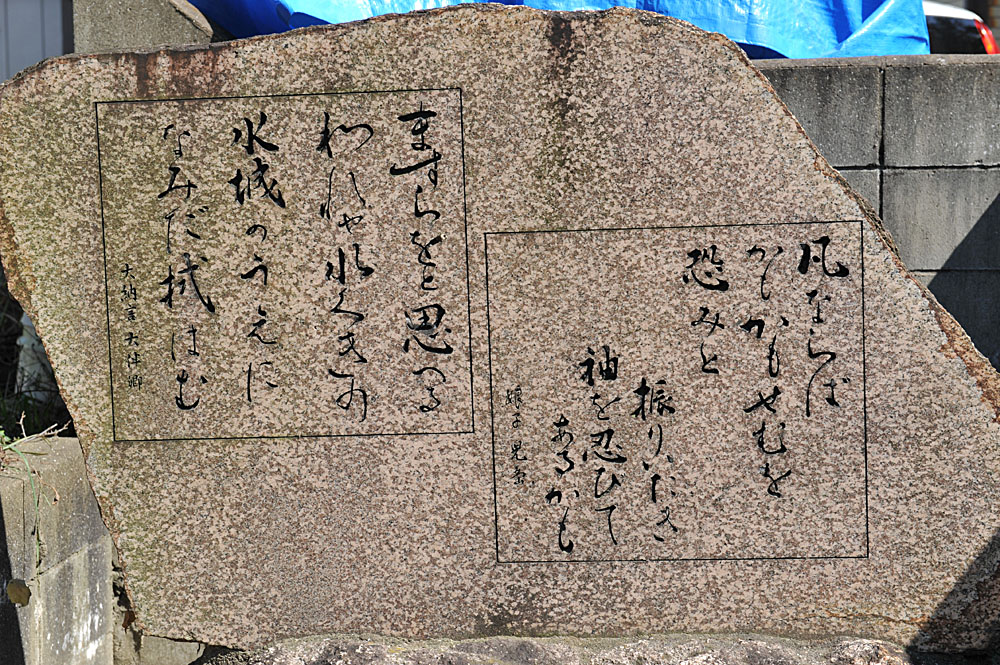 凡ならば
かもかもせむを
恐みと
振りいたき
袖を忍びて
あるかも
娘子児島
ますらをと思へる
われや水くきの
水城のうえに
なみだ拭はむ
大納言大伴卿